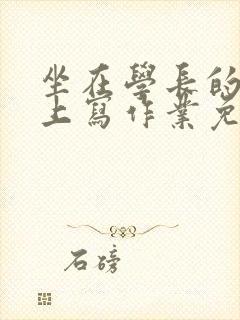 坐在學長的
上寫作業免
石磅